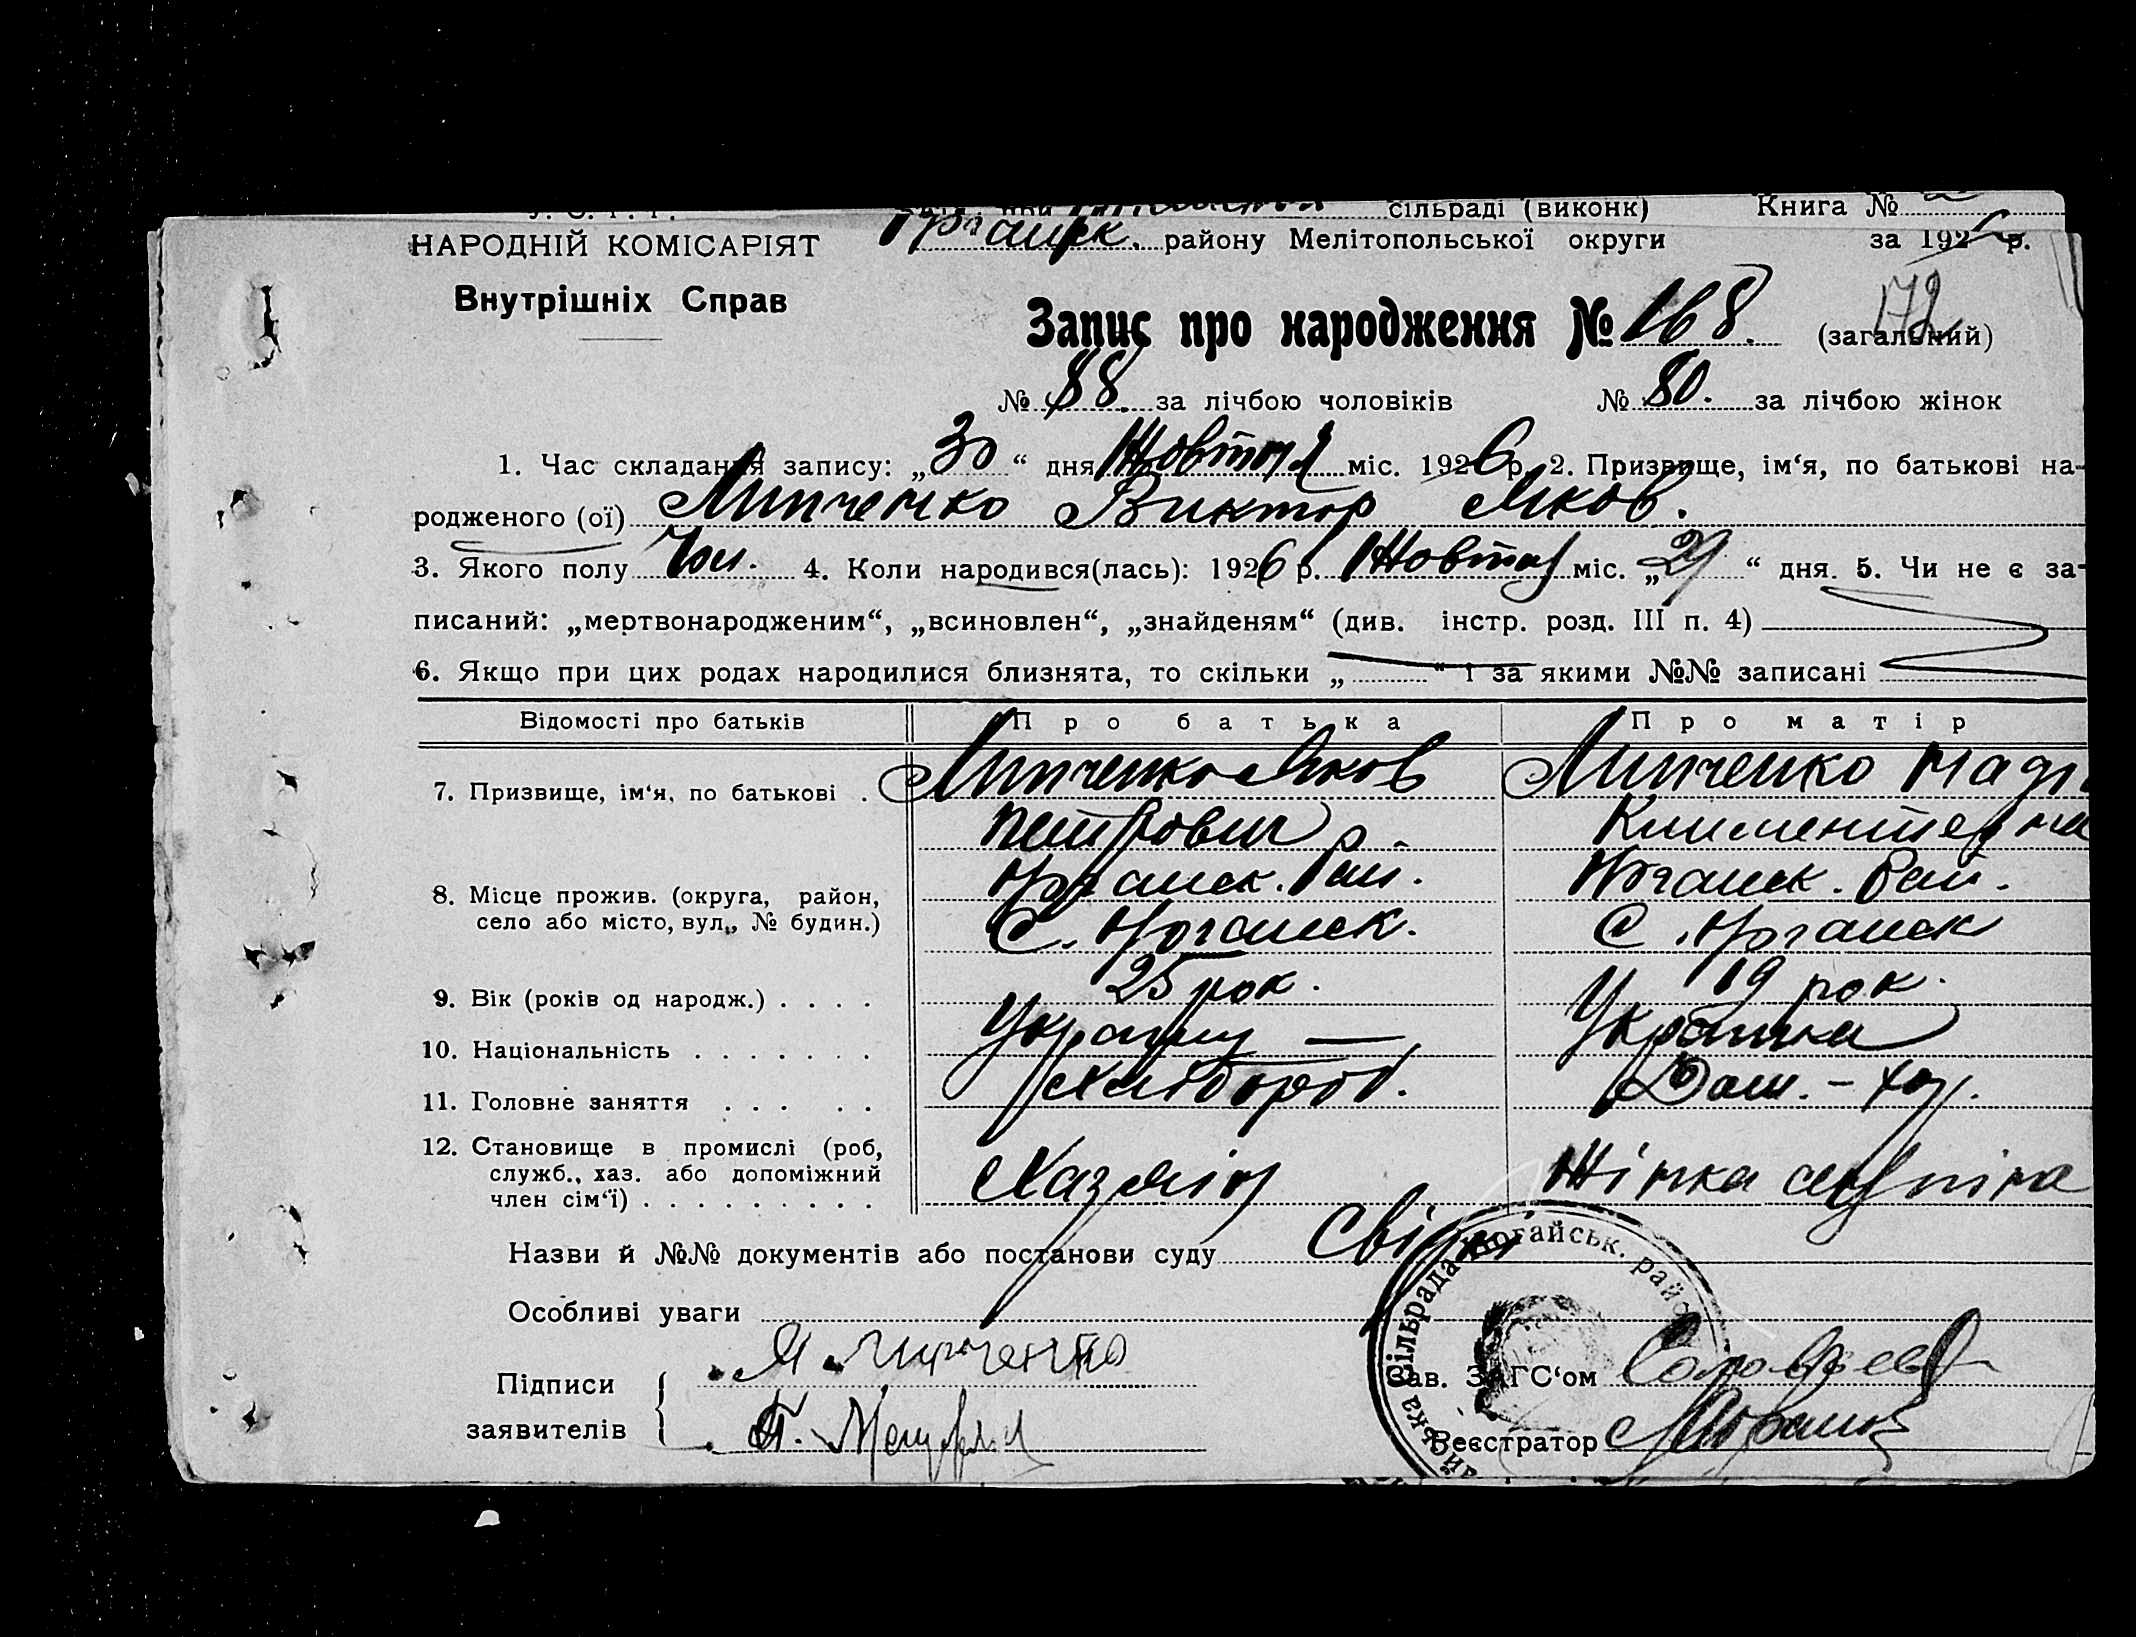 сільраді (виконк) Книга №
НАРОДНІЙ КОМІСАРІЯТ
району Мелітопольської округи за 1926 р.
Внутрішніх Справ
Запис про народження № 168. (загальний) 172
№ 88. за лічбою чоловіків № 80. за лічбою жінок
1. Час складання запису: „30“ дня Жовтня міс. 1926 р. 2. Призвище, ім‘я, по батькові на-
родженого (ої) Липченко Виктор Яков.
3. Якого полу Чол. 4. Коли народився(лась): 1926 р. Жовтня міс. „ “ дня. 5. Чи не є за-
писаний: „мертвонародженим“, „всиновлен“, „знайденям“ (див. інстр. розд. III п. 4)
6. Якщо при цих родах народилися близнята, то скільки „ “ і за якими №№ записані
Відомості про батьків Про батька Про матір
7. Призвище, ім‘я, по батькові . Липченко Яков Липченко
Петрович
8. Місце прожив. (округа, район, Ногайск. Рай. Ногайск. Рай.
село або місто, вул., № будин.) С. Ногайск. С. Ногайск
9. Вік (років од народж.) . . . . 25 рок. 19 рок.
10. Національність . . . . . . . Украинц — Украинка
11. Головне заняття . . . . . Хлібороб. Дом. –
12. Становище в промислі (роб,
служб., хаз. або допоміжний
член сім‘ї) . . . . . . . . . Хазяін Жінка
Назви й №№ документів або постанови суду
Особливі уваги
Підписи Я. Липченко
заявителів
Зав. ЗАГС‘ом
Реєстратор
сільрада Ногайськ. район